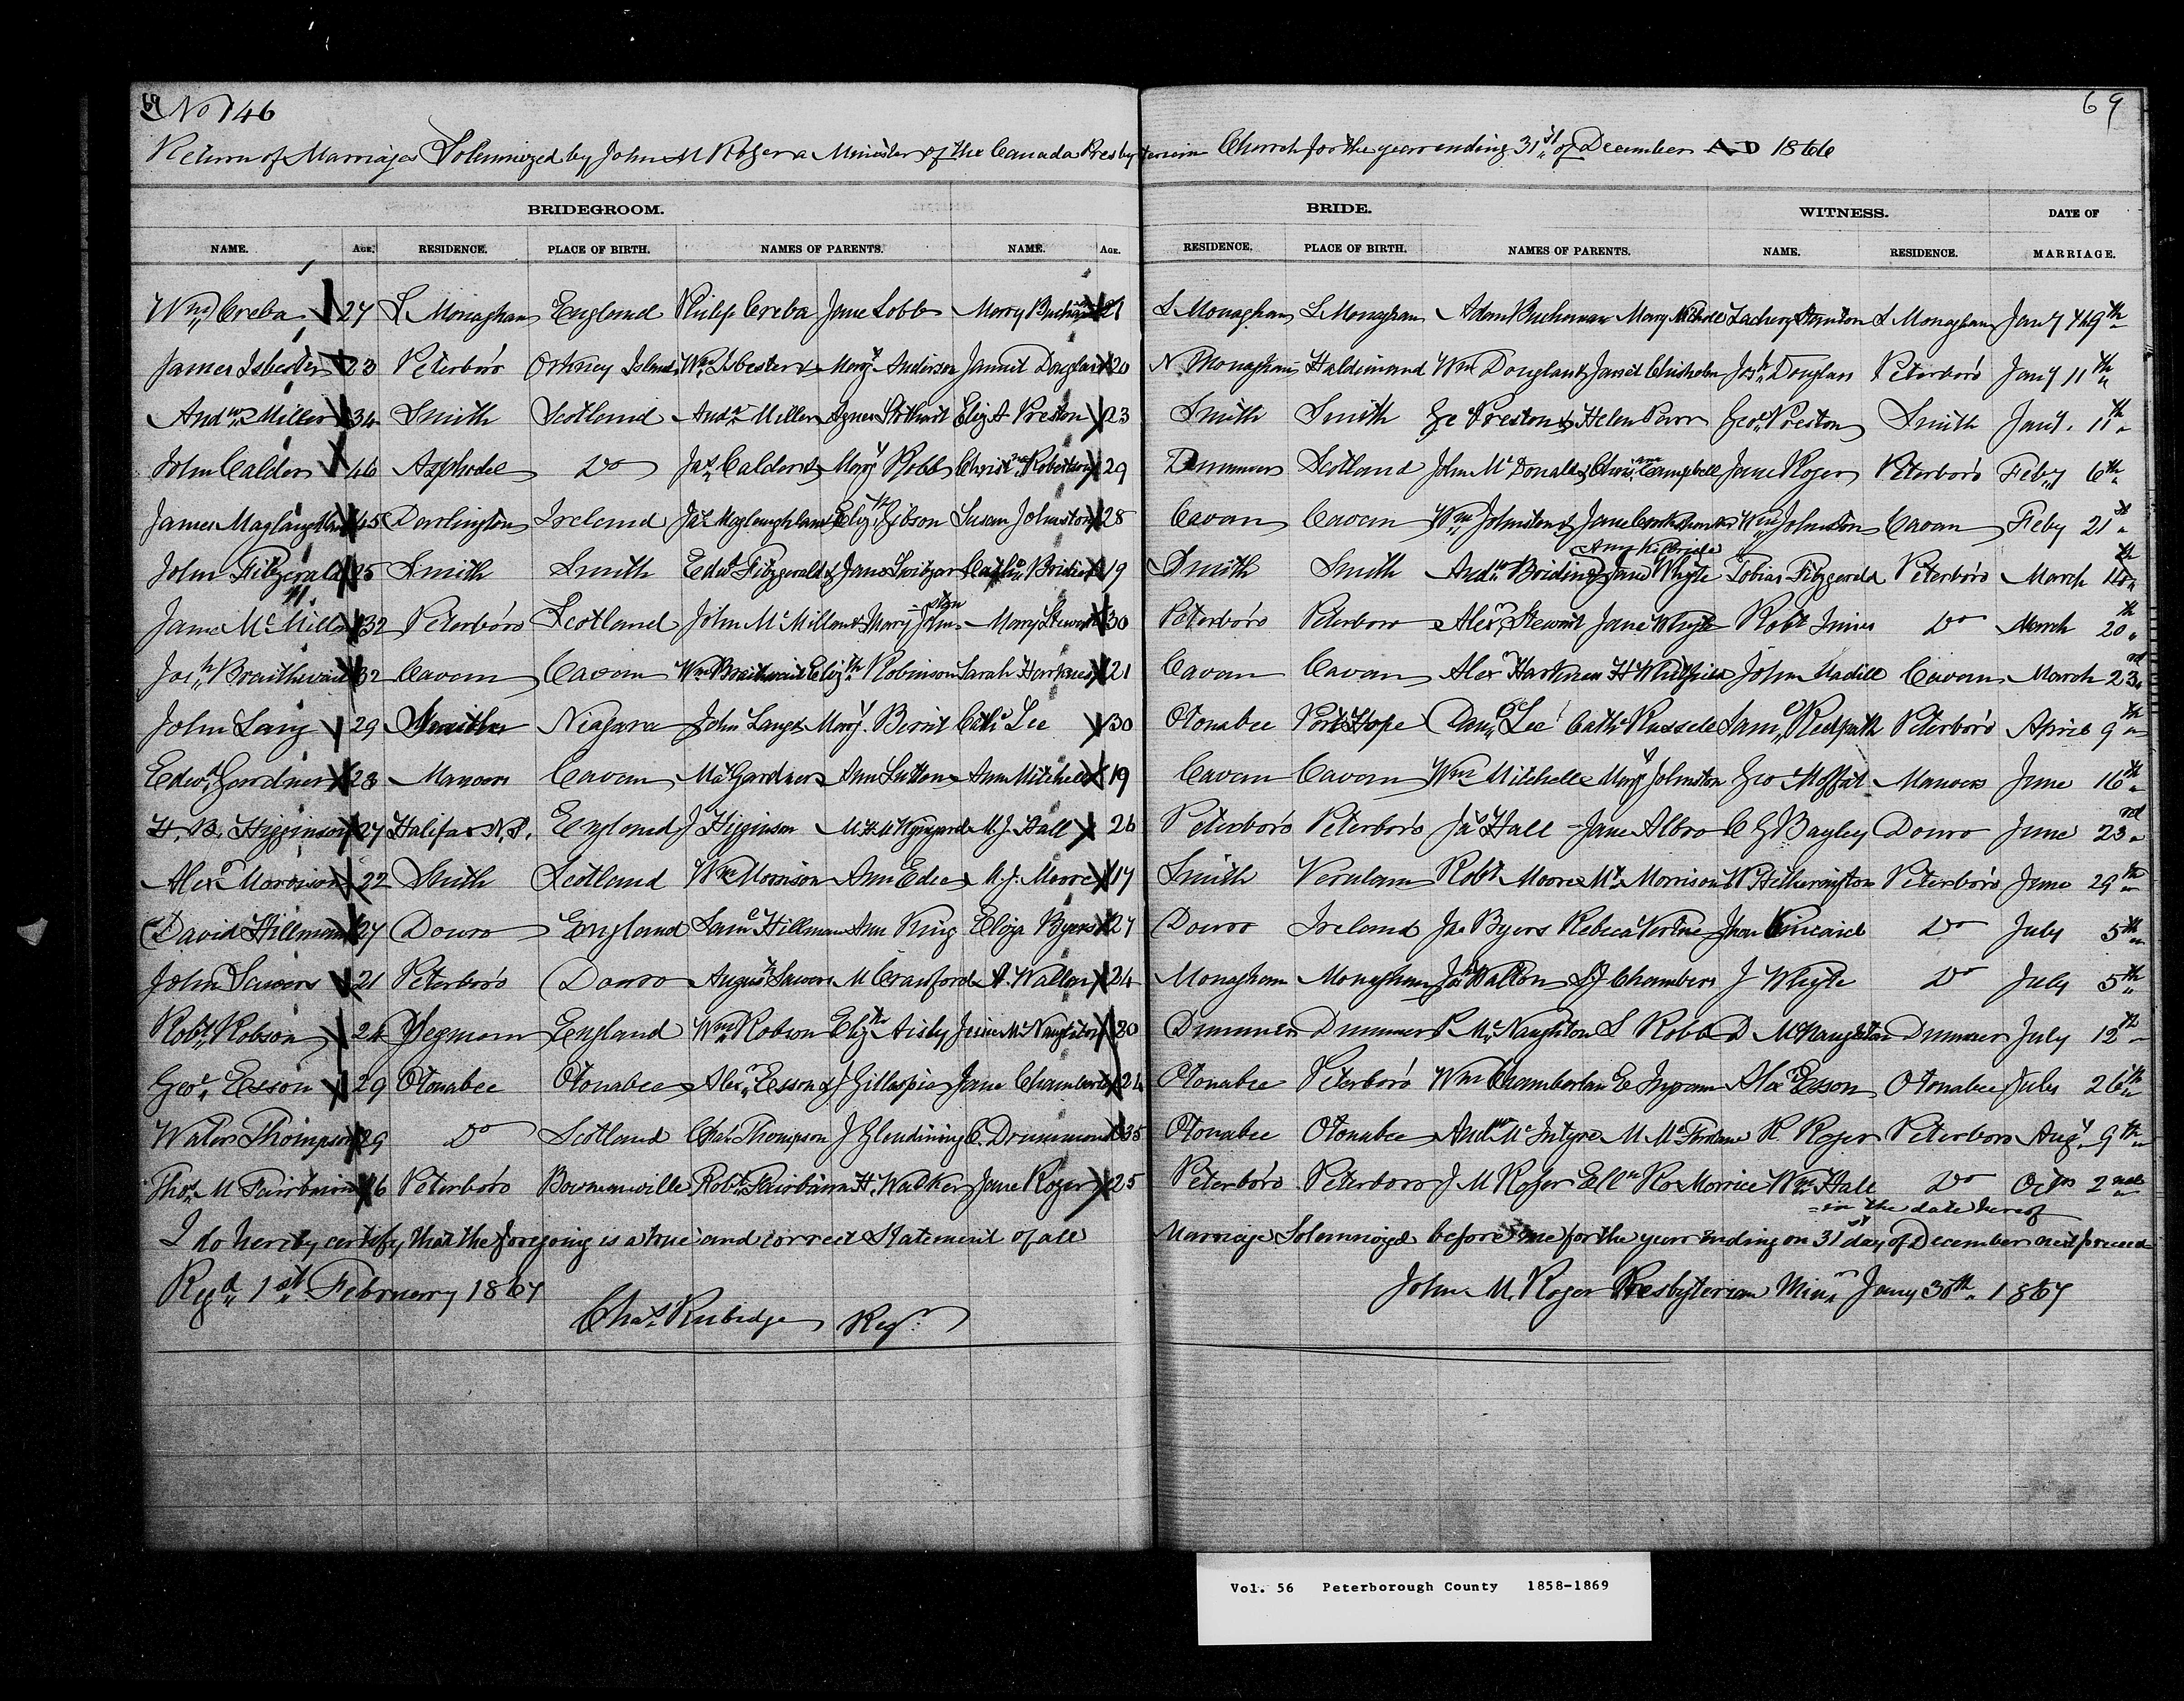 69 No 146
69
Return of Marriages Solemnized by John M Roger a Minister of the Canada Presbyterian Church for the year ending 31st of December AD 1866
BRIDEGROOM. BRIDE. WITNESS. DATE OF
NAME. AGE. RESIDENCE. PLACE OF BIRTH. NAMES OF PARENTS. NAME. AGE. RESIDENCE. PLACE OF BIRTH. NAMES OF PARENTS. NAME. RESIDENCE. MARRIAGE.
Wm Creba 27 S Monaghan England Philip Creba Jane Lobb Mary Buchanan 21 S Monaghan S Monaghan Adam Buchanan Mary Nicholl Zachery Stanton S Monaghan Jany 9th
James Isbester 23 Peterboro Orkney Island Wm Isbester & Margt Anderson Jannit Douglas 20 N Monaghan Haldimand Wm Douglas & Janet Chisholm Josh Douglas Peterboro Jany 11th
Andw Miller 34 Smith Scotland Andw Miller Agnes Stothart Eliz A Preston 23 Smith Smith Ge Preston & Helen Parr Geo Preston Smith Jany. 11th
John Calder 46 Asphodel Do Jas Calder & Margt Robb Christne Robertson 29 Dummer Scotland John McDonald & Chrisane Campbell Jane Roger Peterboro Feby 6th
James Maglaughlan 45 Darlington Ireland Jas Maglaughlan & Elizth Gibson Susan Johnston 28 Cavan Cavan Wm Johnston & Jane Wm Johnston Cavan Feby 21st
John Fitzgerald 25 Smith Smith Edwd Fitzgerald & Jane Switzer 19 Smith Smith Andw Jane Whyte Tobias Fitzgerald Peterboro March
James McMillan 32 Peterboro Scotland John McMillan & Mary Johnston Mary Stewart 30 Peterboro Peterboro Alexr Stewart Jane Whyte Robt Innes Do March 20th
Josh Braithwait 32 Cavan Cavan Wm Braithwait Elizth Robinson Sarah Harkness 21 Cavan Cavan Alexr Harkness H Whitfield John Madill Cavan March 23rd
John Lang 29 Smith Niagara John Lang & Margt. Cathe Lee 30 Otonabee Port Hope Danl Lee Cathe Russell Saml Redpath Peterboro April 9th
Edwd Gardner 28 Manvers Cavan Gardner Ann Sutton Ann Mitchell 19 Cavan Cavan Wm Mitchell Margt Johnston Geo Moffat Manvers June 16th
H. B. Higginson 27 Halifax N.S. England J Higginson M. J. Hall 26 Peterboro Peterboro Jas Hall Jane Albro C G Bayley Douro June 23rd
Alexr Morrison 22 Smith Scotland Wm Morrison Ann Edee M. J. Moore 17 Smith Verulam Robt Moore Morrison W Hetherington Peterboro June 29th
David Hillman 27 Douro England Saml Hillman Ann King Eliza Byers 27 Douro Ireland Jas Byers Rebeca Kincaid Do July 5th
John Sawers 21 Peterboro Douro Augus Sawers M Crawford A. Walton 24 Monaghan Monaghan Jos Walton S J Chambers J Whyte Do July 5th
Robt Robson 24 Seymour England Wm Robson Elizth Aisby Jessie McNaughton 20 Dummer Dummer P. McNaughton S Robb D McNaughton Dummer July 12th
Geoe Esson 29 Otonabee Otonabee Alexr Esson & J Gillespie Jane Chamberlan 24 Otonabee Peterboro Wm Chamberlan E Ingram Alexr Esson Otonabee July 26th
Walter Thompson 29 Do Scotland Chas Thompson J Glendining C. Drummond 35 Otonabee Otonabee Andw McIntyre M McFarlane R Roger Peterboro Augt 9th
Thos M Fairbairn 26 Peterboro Bowmanville Robt Fairbairn H. Walker Jane Roger 25 Peterboro Peterboro J M Roger Morrice Wm Hall Do Octr 2nd
I do hereby certify that the foregoing is a true and correct Statement of all Marriage Solemnized before me for the year ending on 31st day of December next preced
-in the date hereof
Regd 1st February 1867
John M. Roger Presbyterian Minr Jany 30th 1867
Chas Rubidge Regr
Vol. 56 Peterborough County 1858-1869